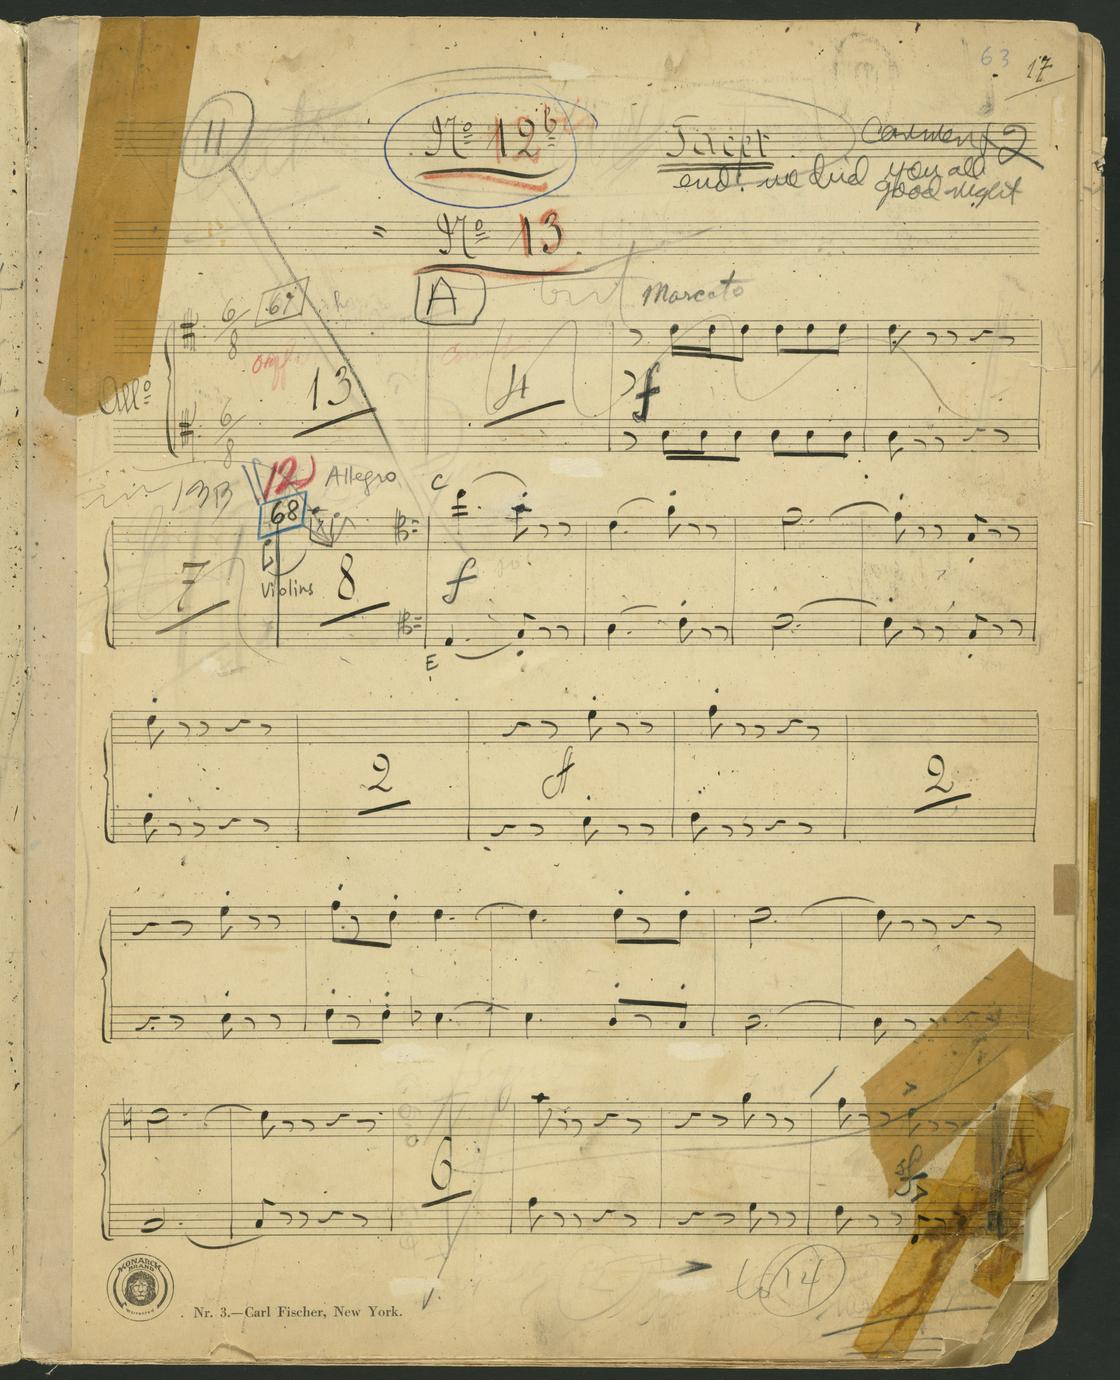 63 17
11 Nº 12b Tacet
end. we bid you all
good night
= Nº 13
67 A Marcato
6/8
Allº 13 4 f
6/8
13B 12 Allegro C
68
7 Violins 8 f
E
2 2
6 sf
to 14
MONARCH BRAND
Nr. 3.—Carl Fischer, New York.